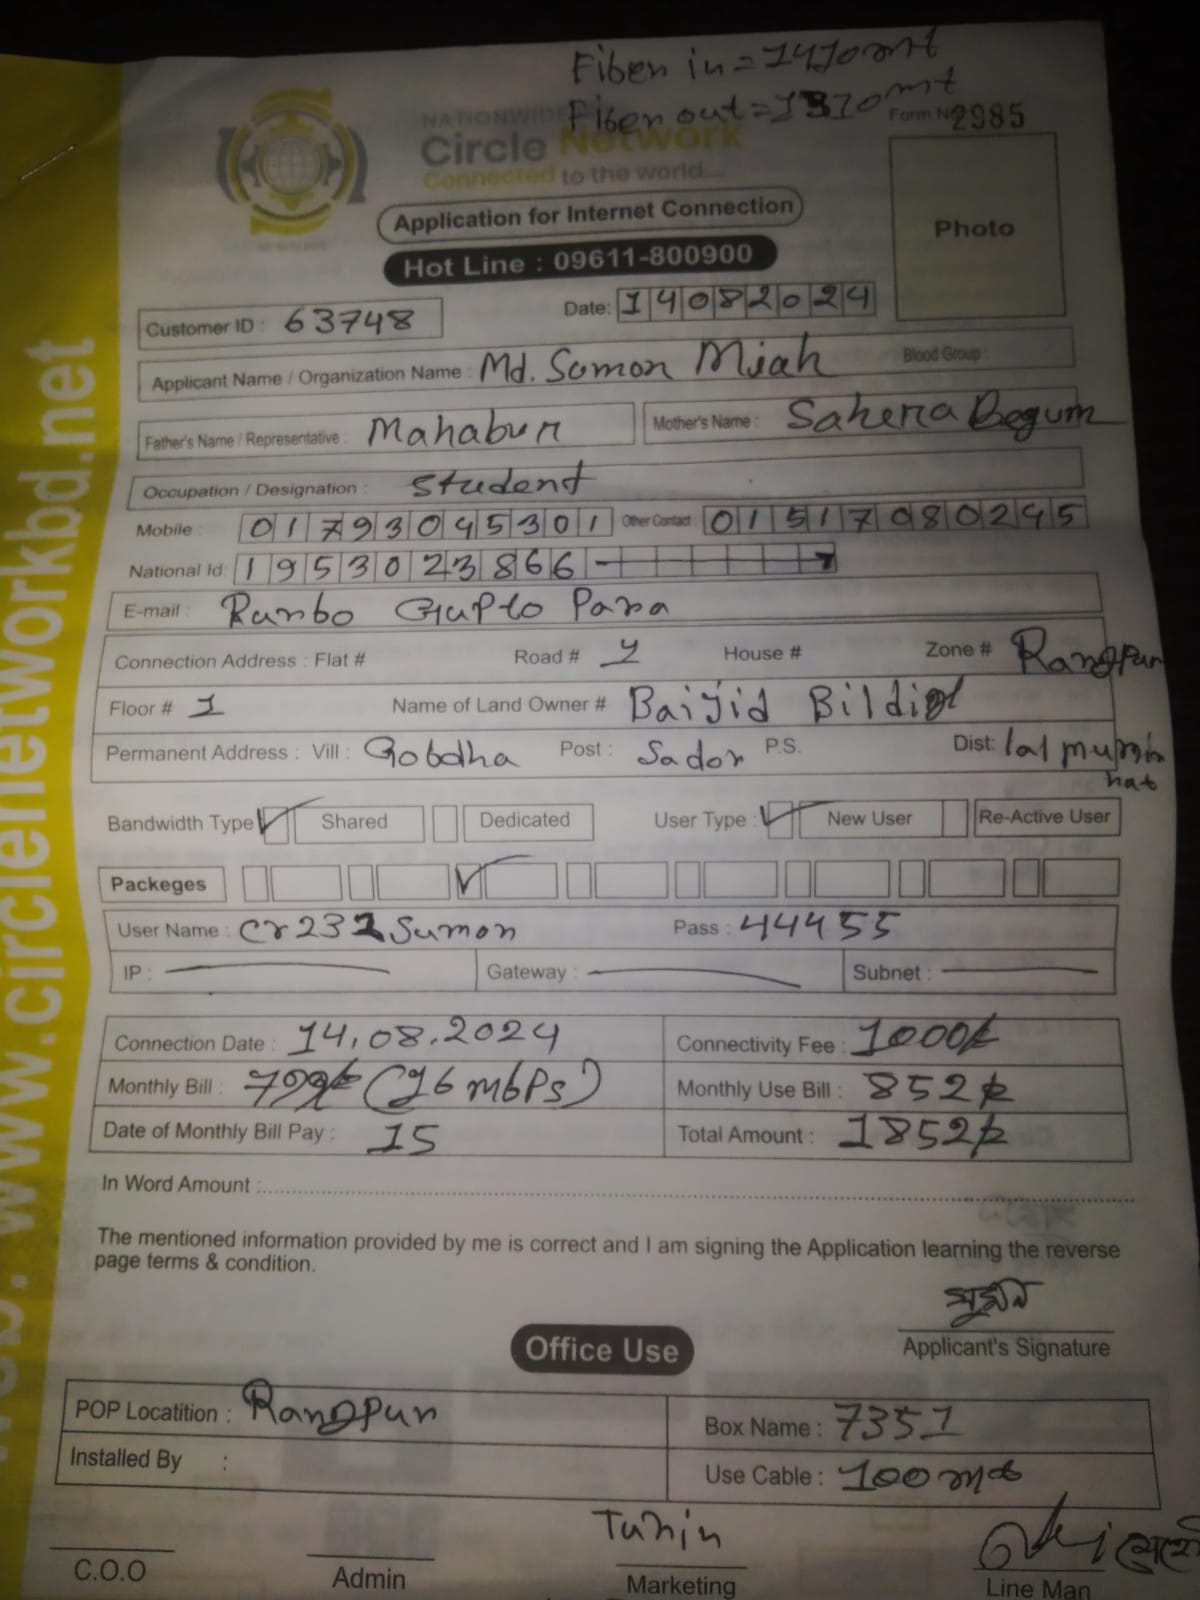 Fiber in = 1470 mt
Fiber out = 1370 mt
NATIONWIDE
Form No 2985
Circle Network
Connected to the world...
Application for Internet Connection
Photo
Hot Line : 09611-800900
Date: 14082024
Customer ID : 63748
Applicant Name / Organization Name : Md. Sumon Miah Blood Group :
Father's Name / Representative : Mahabur Mother's Name : Sahera Begum
Occupation / Designation : Student
Mobile : 01793045301 Other Contact : 01517080245
National Id: 1953023866
E-mail : Gupto Para
Connection Address : Flat # Road # House # Zone # Rangpur
Floor # 1 Name of Land Owner # Baijid
Permanent Address : Vill : Gobdha Post : Sador P.S. Dist: lalmunir
hat
Bandwidth Type Shared Dedicated User Type : New User Re-Active User
Packeges
User Name : Sumon Pass : 44455
IP : Gateway : Subnet :
Connection Date : 14.08.2024 Connectivity Fee : 1000/-
Monthly Bill : Monthly Use Bill : 852/-
Date of Monthly Bill Pay : 15 Total Amount : 1852/-
In Word Amount :
The mentioned information provided by me is correct and I am signing the Application learning the reverse
page terms & condition.
সুমন
Applicant's Signature
Office Use
POP Locatition : Rangpur Box Name : 7351
Installed By : Use Cable : 100
Tuhin
C.O.O Admin Marketing Line Man
www.circlenetworkbd.net